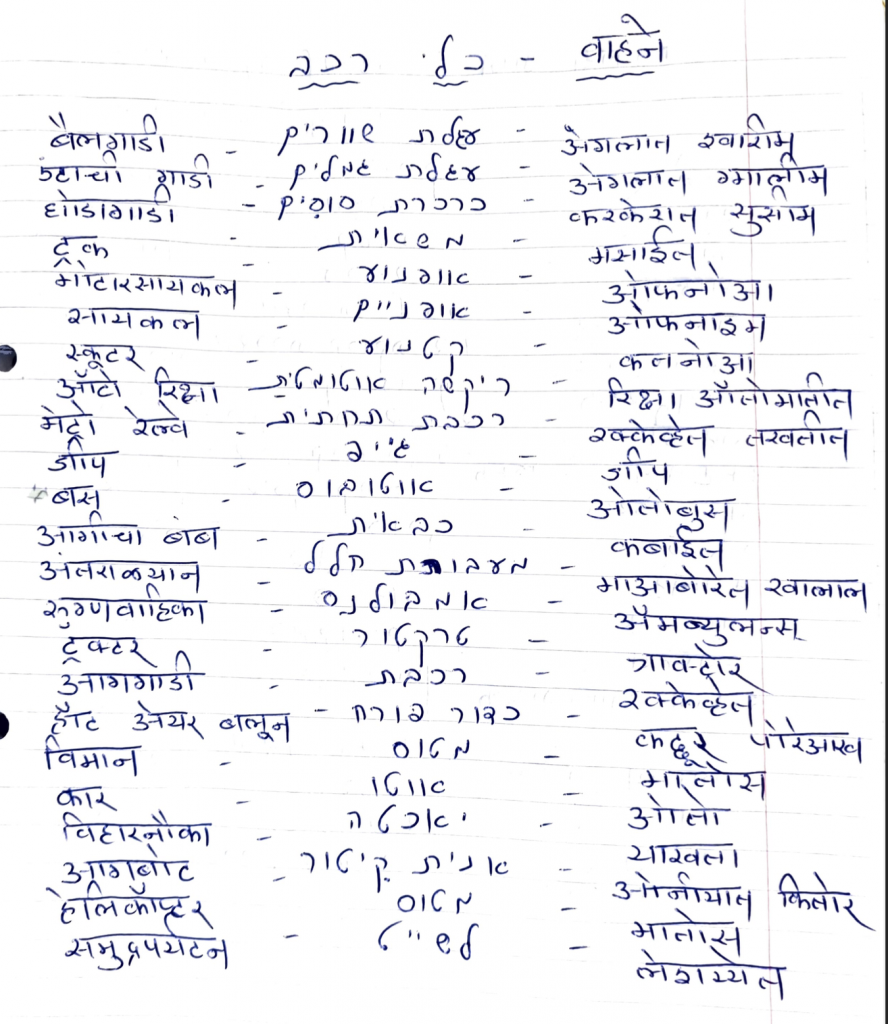 כלי רכב - वाहने
बैलगाडी - עגלת שוורים - अेगलात श्वारीम
उंटाची गाडी - עגלת גמלים - अेगलात ग्मालीम
घोडागाडी - כרכרת סוסים - करकेरात सुसीम
ट्रक - משאית - मसाईत
मोटारसायकल - אופנוע - ओफनोआ
सायकल - אופניים - ओफनाइम
स्कूटर - קטנוע - कतनोआ
ऑटो रिक्षा - ריקשה אוטומטית - रिक्षा ऑतोमातीत
मेट्रो रेल्वे - רכבת תחתית - रक्केव्हेत तखतीत
जीप - ג'יפ - जीप
बस - אוטובוס - ओतोबुस
आगीचा बंब - כבאית - कबाईत
अंतराळयान - מעבורת חלל - माआबोरेत खालाल
रुग्णवाहिका - אמבולנס - अॅमब्युलन्स
ट्रक्टर - טרקטור - त्राक्टोर
आगगाडी - רכבת - रक्केव्हेत
हॅाट अेयर बलून - כדור פורח - कद्दूर पोरेआख
विमान - מטוס - मातोस
कार - אוטו - ओतो
विहारनौका - יאכטה - याखता
आगबोट - אנית קיטור - ओनीयात कितोर
हेलिकॉप्टर - מטוס - मातोस
समुद्रपर्यटन - לשייט - लेशय्येत